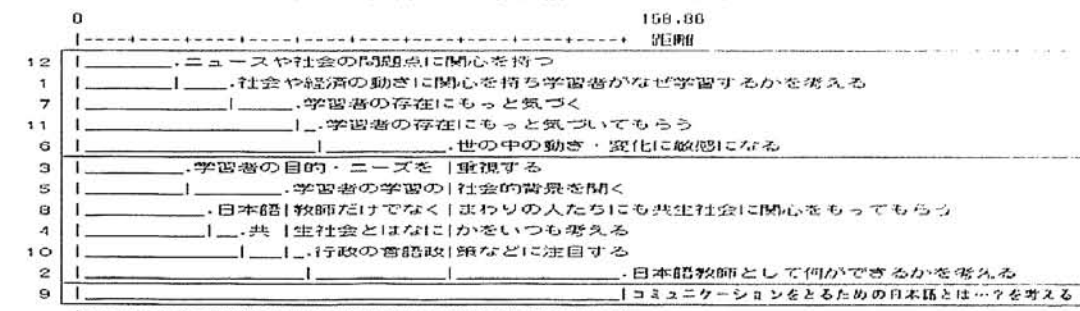 0 158.86
|----+----+----+----+----+----+----+----+----+----+----+ 距離
12 |________.ニュースや社会の問題点に関心を持つ
1 |________|____.社会や経済の動きに関心を持ち学習者がなぜ学習するかを考える
7 |_____________|_____.学習者の存在にもっと気づく
11 |___________________|_.学習者の存在にもっと気づいてもらう
6 |_____________________|____________.世の中の動き・変化に敏感になる
3 |_________.学習者の目的・ニーズを |重視する
5 |_________|_________.学習者の学習の |社会的背景を聞く
8 |___________.日本語|教師だけでなく|まわりの人たちにも共生社会に関心をもってもらう
4 |___________|__.共 |生社会とはなに|かをいつも考える
10 |______________|___|_.行政の言語政|策などに注目する
2 |____________________|_____________|________________.日本語教師として何ができるかを考える
9 |____________________________________________________|コミュニケーションをとるための日本語とは…?を考える